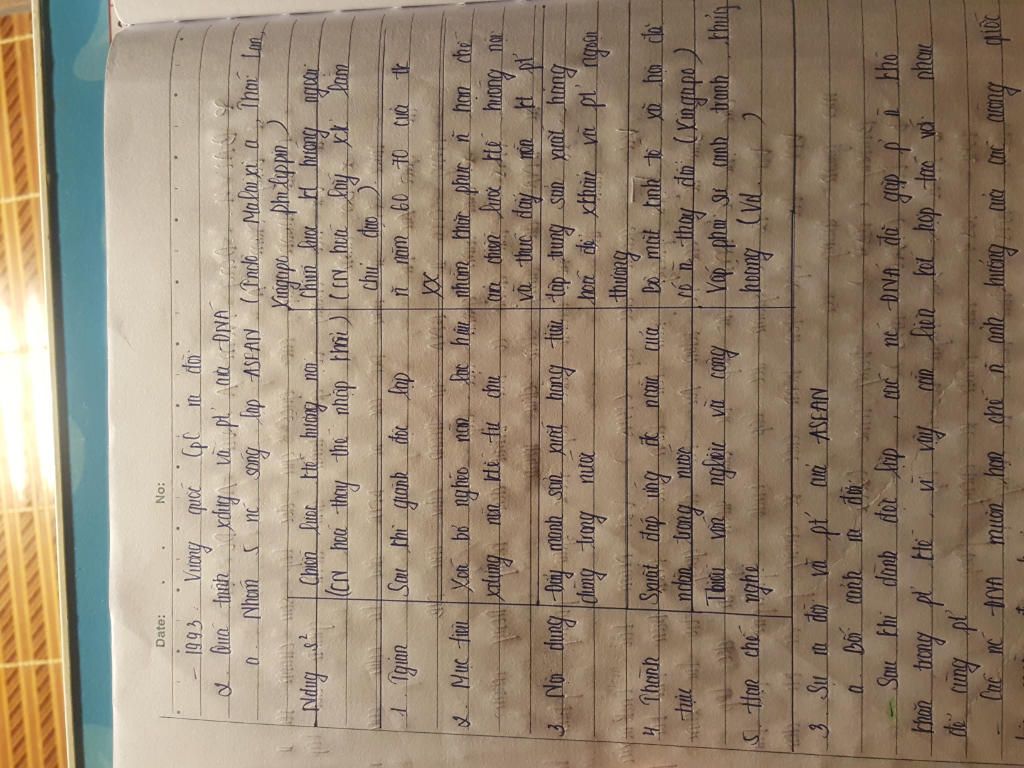 Date: No:
- 1993 Vương quốc Cpc ra đời
2 Quá trình xdựng và pt của ĐNA
a. Nhóm 5 nc sáng lập ASEAN (Inđo, Malaixia, Thái Lan,
Xingapo, Philippin)
Ndung s²
Chiến lược ktế hướng nội
(CN hoá thay thế nhập khẩu)
Chiến lược kt hướng ngoại
(CN hoá lấy xk làm
chủ đạo)
1 Tgian
Sau khi giành độc lập
Từ năm 60 - 70 của tk
XX
2 Mục tiêu
Xoá bỏ nghèo nàn lạc hậu
xdựng nền ktế tự chủ
nhằm khắc phục hạn chế
của chiến lược ktế hướng nội
và thúc đẩy nền kt pt
3 Nội dung
Đẩy mạnh sản xuất hàng tiêu
dùng trong nước
tập trung sản xuất hàng
hoá để xkhẩu và pt ngoại
thương
4. Thành
tựu
Sxuất đáp ứng đc nhu cầu của
nhân dân trong nước
Bộ mặt kinh tế xã hội đã
có sự thay đổi (Xingapo)
5. Hạn chế
Thiếu vốn, nguyên liệu và công
nghệ
Vấp phải sự cạnh tranh, khủng
hoảng (Vd )
3 Sự ra đời và pt của ASEAN
a. Bối cảnh ra đời
Sau khi giành độc lập, các nc ĐNA đều gặp phải khó
khăn trong pt ktế, vì vậy cần liên kết hợp tác với nhau
để cùng pt
- Các nc ĐNA muốn hạn chế ảnh hưởng của các cường quốc